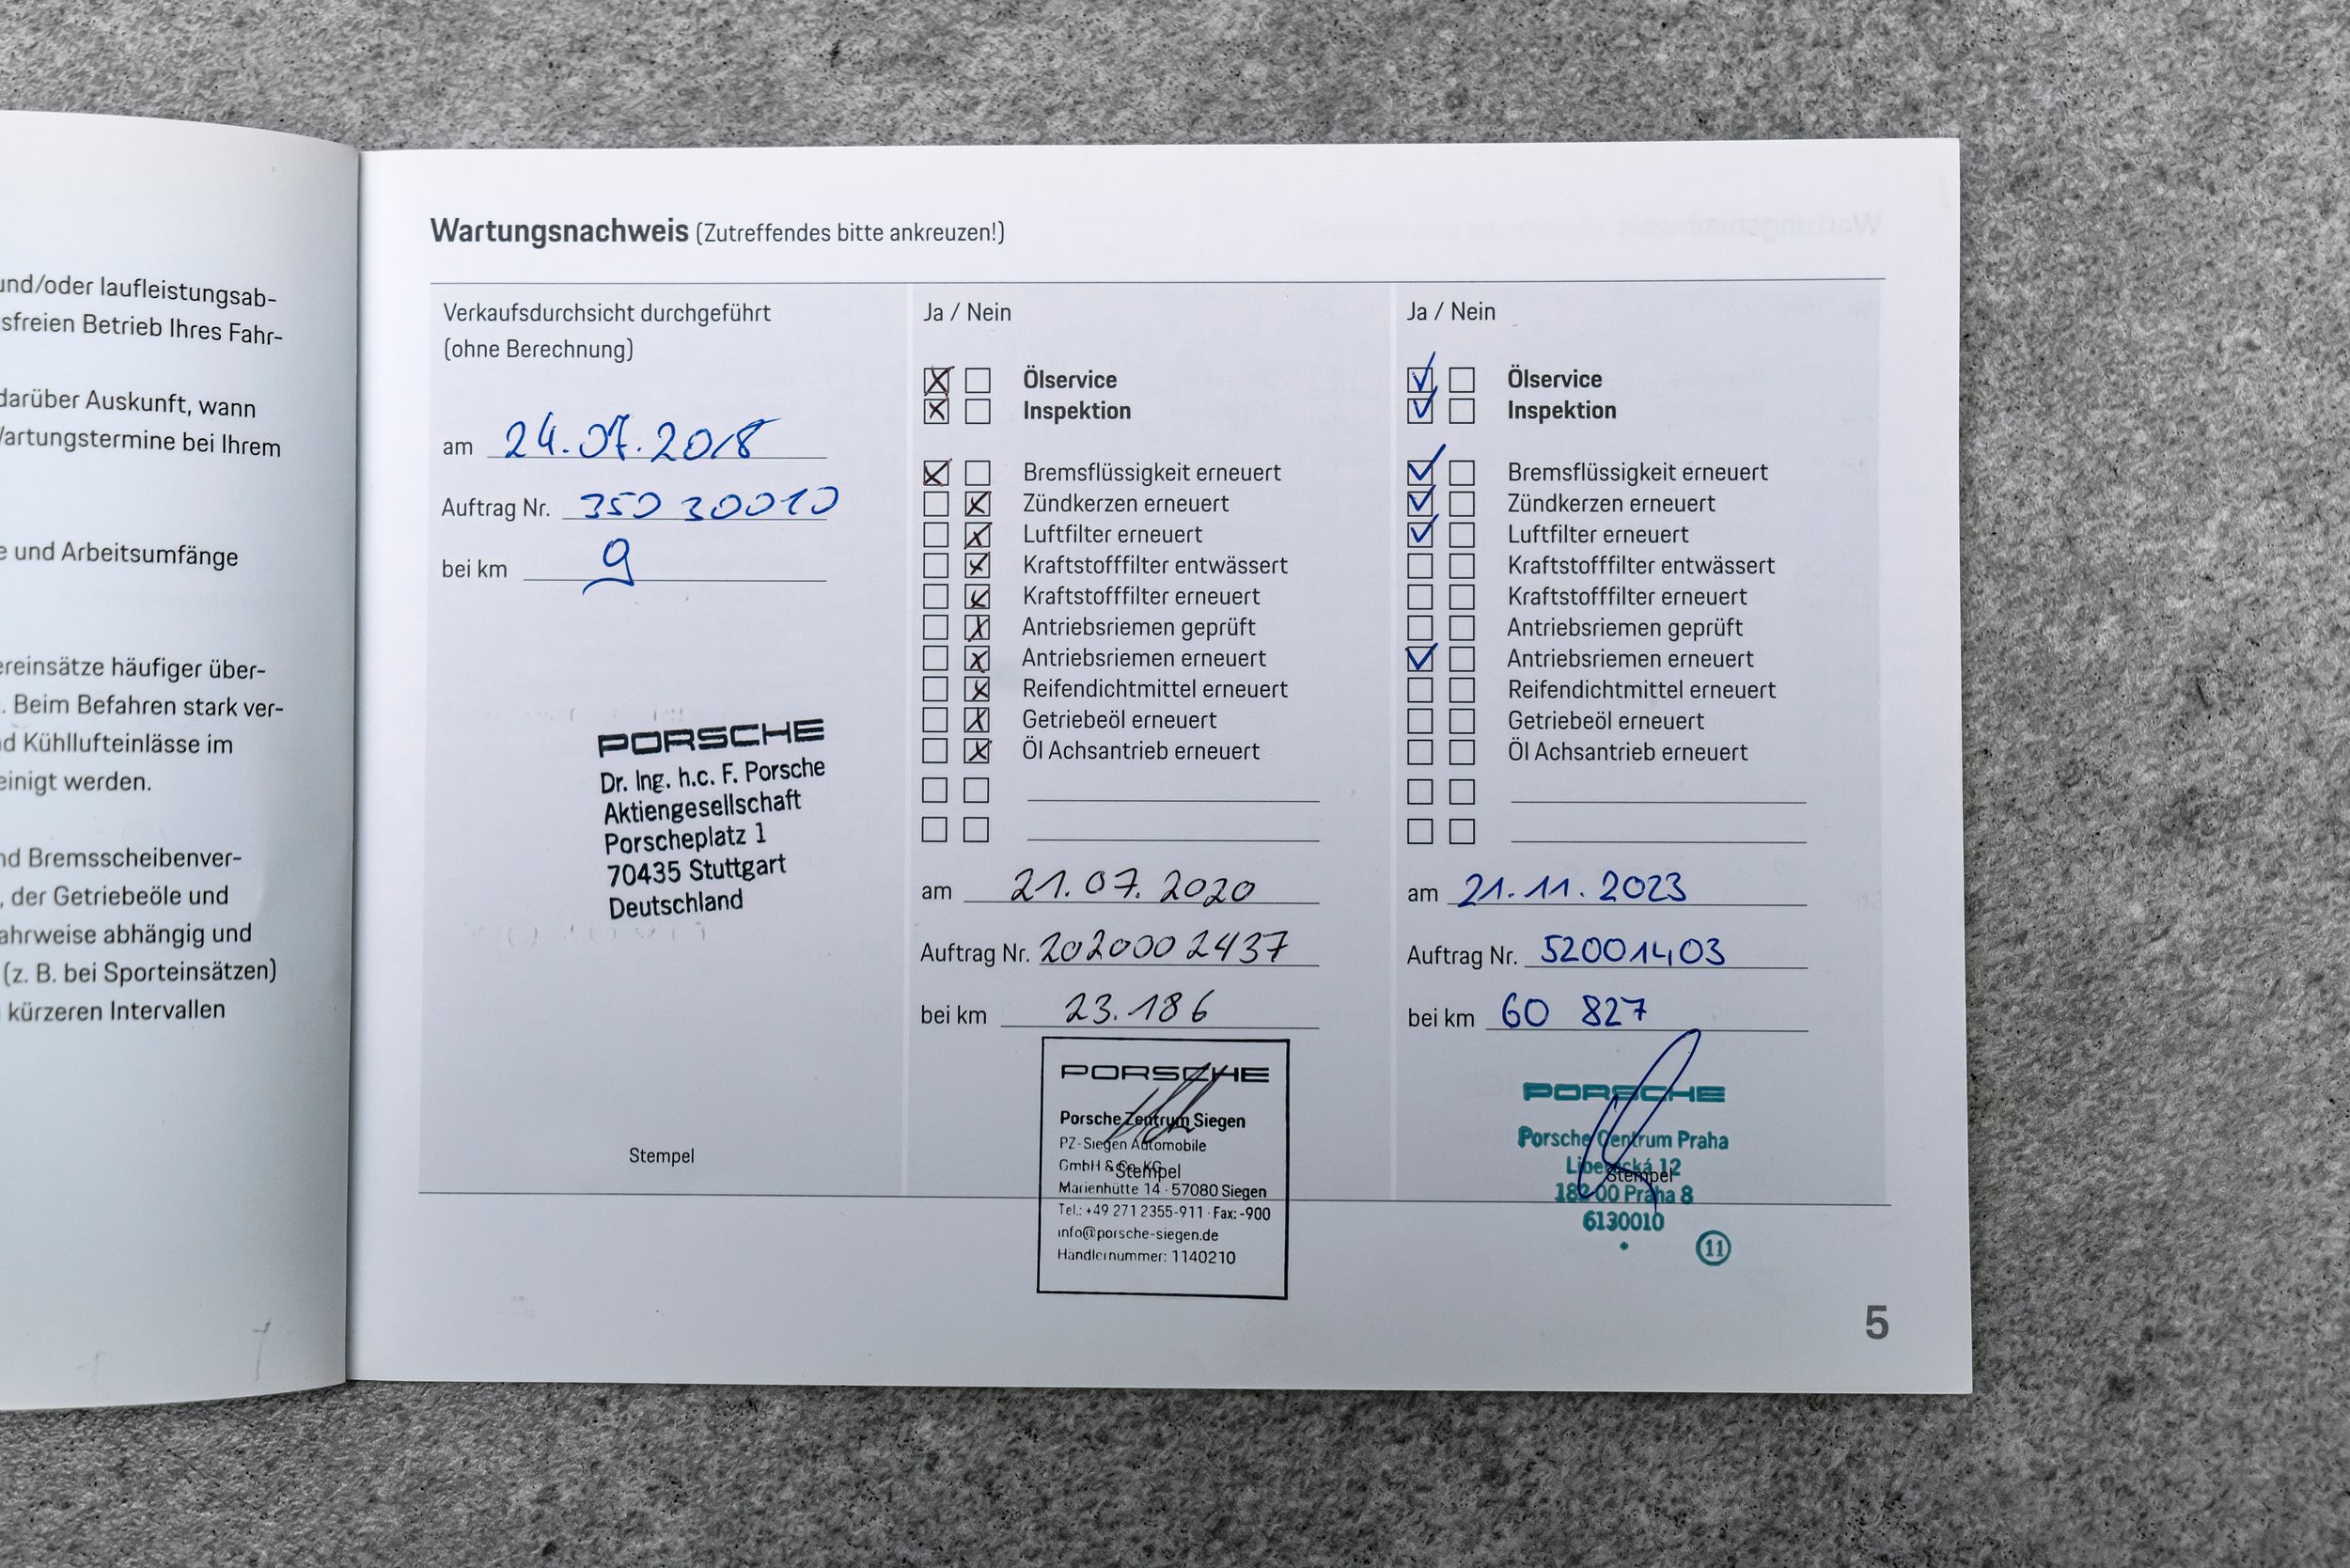 und/oder laufleistungsab-
sfreien Betrieb Ihres Fahr-
darüber Auskunft, wann
Wartungstermine bei Ihrem
e und Arbeitsumfänge
ereinsätze häufiger über-
. Beim Befahren stark ver-
nd Kühllufteinlässe im
einigt werden.
nd Bremsscheibenver-
, der Getriebeöle und
ahrweise abhängig und
(z. B. bei Sporteinsätzen)
kürzeren Intervallen
Wartungsnachweis (Zutreffendes bitte ankreuzen!)
Verkaufsdurchsicht durchgeführt
(ohne Berechnung)
am 24.07.2018
Auftrag Nr. 350 30010
bei km 9
PORSCHE
Dr. Ing. h.c. F. Porsche
Aktiengesellschaft
Porscheplatz 1
70435 Stuttgart
Deutschland
Stempel
Ja / Nein
Ölservice
Inspektion
Bremsflüssigkeit erneuert
Zündkerzen erneuert
Luftfilter erneuert
Kraftstofffilter entwässert
Kraftstofffilter erneuert
Antriebsriemen geprüft
Antriebsriemen erneuert
Reifendichtmittel erneuert
Getriebeöl erneuert
Öl Achsantrieb erneuert
am 21.07.2020
Auftrag Nr. 2020002437
bei km 23.186
PORSCHE
Porsche Zentrum Siegen
PZ-Siegen Automobile
GmbH & Co. KG
Stempel
Marienhütte 14 · 57080 Siegen
Tel.: +49 271 2355-911 · Fax: -900
info@porsche-siegen.de
Händlernummer: 1140210
Ja / Nein
Ölservice
Inspektion
Bremsflüssigkeit erneuert
Zündkerzen erneuert
Luftfilter erneuert
Kraftstofffilter entwässert
Kraftstofffilter erneuert
Antriebsriemen geprüft
Antriebsriemen erneuert
Reifendichtmittel erneuert
Getriebeöl erneuert
Öl Achsantrieb erneuert
am 21.11.2023
Auftrag Nr. 52001403
bei km 60 827
PORSCHE
Porsche Centrum Praha
Liberecká 12
Stempel
182 00 Praha 8
6130010
11
5